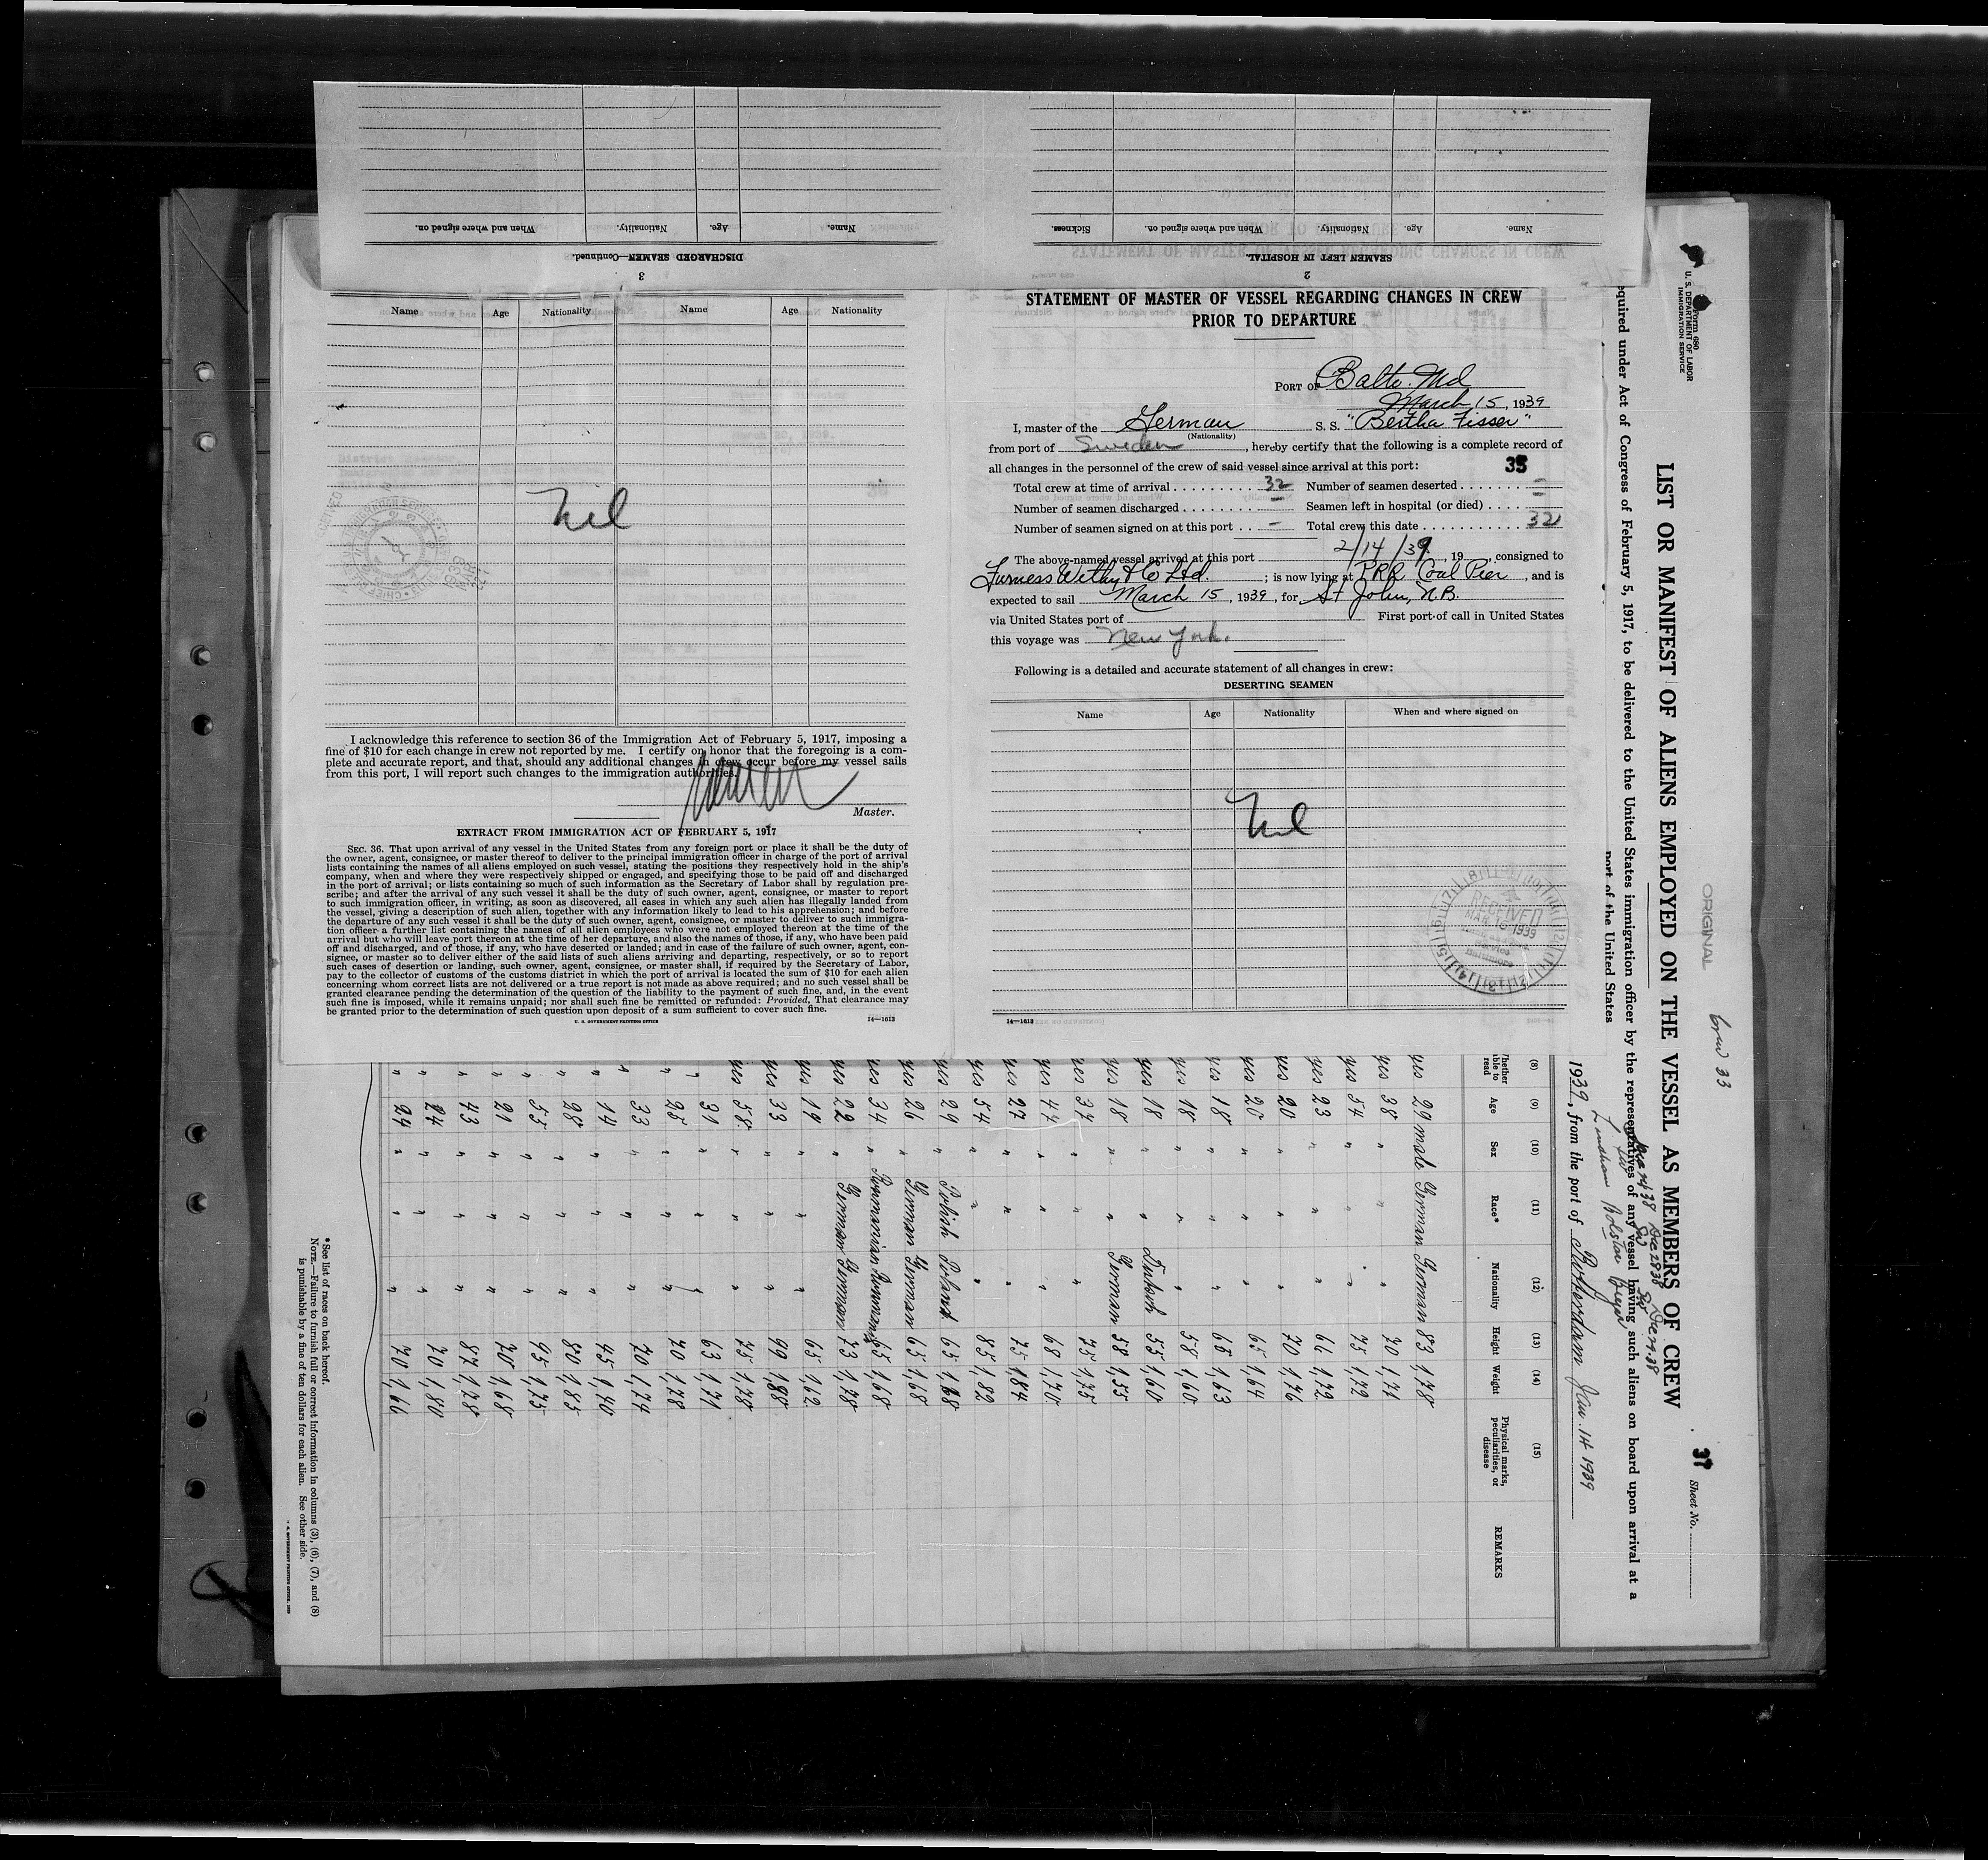 Name. Age. Nationality. When and where signed on. Sickness.
SEAMEN LEFT IN HOSPITAL.
2
Name. Age. Nationality. When and where signed on.
DISCHARGED SEAMEN—Continued.
3
Name Age Nationality Name Age Nationality
Nil
I acknowledge this reference to section 36 of the Immigration Act of February 5, 1917, imposing a
fine of $10 for each change in crew not reported by me. I certify on honor that the foregoing is a com-
plete and accurate report, and that, should any additional changes in crew occur before my vessel sails
from this port, I will report such changes to the immigration authorities.
Master.
EXTRACT FROM IMMIGRATION ACT OF FEBRUARY 5, 1917
SEC. 36. That upon arrival of any vessel in the United States from any foreign port or place it shall be the duty of
the owner, agent, consignee, or master thereof to deliver to the principal immigration officer in charge of the port of arrival
lists containing the names of all aliens employed on such vessel, stating the positions they respectively hold in the ship's
company, when and where they were respectively shipped or engaged, and specifying those to be paid off and discharged
in the port of arrival; or lists containing so much of such information as the Secretary of Labor shall by regulation pre-
scribe; and after the arrival of any such vessel it shall be the duty of such owner, agent, consignee, or master to report
to such immigration officer, in writing, as soon as discovered, all cases in which any such alien has illegally landed from
the vessel, giving a description of such alien, together with any information likely to lead to his apprehension; and before
the departure of any such vessel it shall be the duty of such owner, agent, consignee, or master to deliver to such immigra-
tion officer a further list containing the names of all alien employees who were not employed thereon at the time of the
arrival but who will leave port thereon at the time of her departure, and also the names of those, if any, who have been paid
off and discharged, and of those, if any, who have deserted or landed; and in case of the failure of such owner, agent, con-
signee, or master so to deliver either of the said lists of such aliens arriving and departing, respectively, or so to report
such cases of desertion or landing, such owner, agent, consignee, or master shall, if required by the Secretary of Labor,
pay to the collector of customs of the customs district in which the port of arrival is located the sum of $10 for each alien
concerning whom correct lists are not delivered or a true report is not made as above required; and no such vessel shall be
granted clearance pending the determination of the question of the liability to the payment of such fine, and, in the event
such fine is imposed, while it remains unpaid; nor shall such fine be remitted or refunded: Provided, That clearance may
be granted prior to the determination of such question upon deposit of a sum sufficient to cover such fine.
U. S. GOVERNMENT PRINTING OFFICE 14—1613
STATEMENT OF MASTER OF VESSEL REGARDING CHANGES IN CREW
PRIOR TO DEPARTURE
PORT OF Balto. Md
March 15, 1939
I, master of the German S. S. "Bertha Fisser"
(Nationality)
from port of Sweden, hereby certify that the following is a complete record of
all changes in the personnel of the crew of said vessel since arrival at this port: 35
Total crew at time of arrival 32 Number of seamen deserted –
Number of seamen discharged – Seamen left in hospital (or died) –
Number of seamen signed on at this port – Total crew this date 32
The above-named vessel arrived at this port 2/14/39, 19 , consigned to
Furness Withy & Co Ltd. ; is now lying at PRR Coal Pier, and is
expected to sail March 15, 1939, for St John, N.B.
via United States port of First port of call in United States
this voyage was New York.
Following is a detailed and accurate statement of all changes in crew:
DESERTING SEAMEN
Name Age Nationality When and where signed on
Nil
RECEIVED
MAR 16 1939
Baltimore
14—1613
Form 680
U. S. DEPARTMENT OF LABOR
IMMIGRATION SERVICE
ORIGINAL
37
Sheet No.
LIST OR MANIFEST OF ALIENS EMPLOYED ON THE VESSEL AS MEMBERS OF CREW
required under Act of Congress of February 5, 1917, to be delivered to the United States immigration officer by the representatives of any vessel having such aliens on board upon arrival at a
port of the United States
1939, from the port of Rotterdam Jan. 14 1939
(8) (9) (10) (11) (12) (13) (14) (15)
Whether able to read Age Sex Race* Nationality Height Weight Physical marks, peculiarities, or disease REMARKS
yes 29 male German German 83 1,78
yes 38 " " " 70 1,71
yes 54 " " " 75 1,72
yes 23 " " " 66 1,72
yes 20 " " " 70 1,76
yes 20 " " " 65 1,64
yes 18 " " " 68 1,63
yes 18 " " " 58 1,60
yes 18 " " 55 1,60
yes 18 " " German 58 1,55
yes 37 " " " 75 1,75
yes 44 " " " 68 1,70
yes 27 " " " 75 1,84
yes 54 " " " 85 1,82
yes 29 " Polish Poland 65 1,68
yes 26 " German German 65 1,68
yes 34 " 65 1,68
yes 22 " German German 73 1,78
yes 19 " " " 65 1,62
yes 33 " " " 99 1,88
yes 58 " " " 75 1,78
" 31 " " " 63 1,71
" 25 " " " 70 1,78
" 33 " " " 70 1,74
" 14 " " " 45 1,40
" 28 " " " 80 1,85
" 55 " " " 95 1,75
" 21 " " " 70 1,68
" 43 " " " 87 1,78
" 24 " " " 70 1,80
" 29 " " " 70 1,66
* See list of races on back hereof.
NOTE.—Failure to furnish full or correct information in columns (3), (6), (7), and (8)
is punishable by a fine of ten dollars for each alien. See other side.